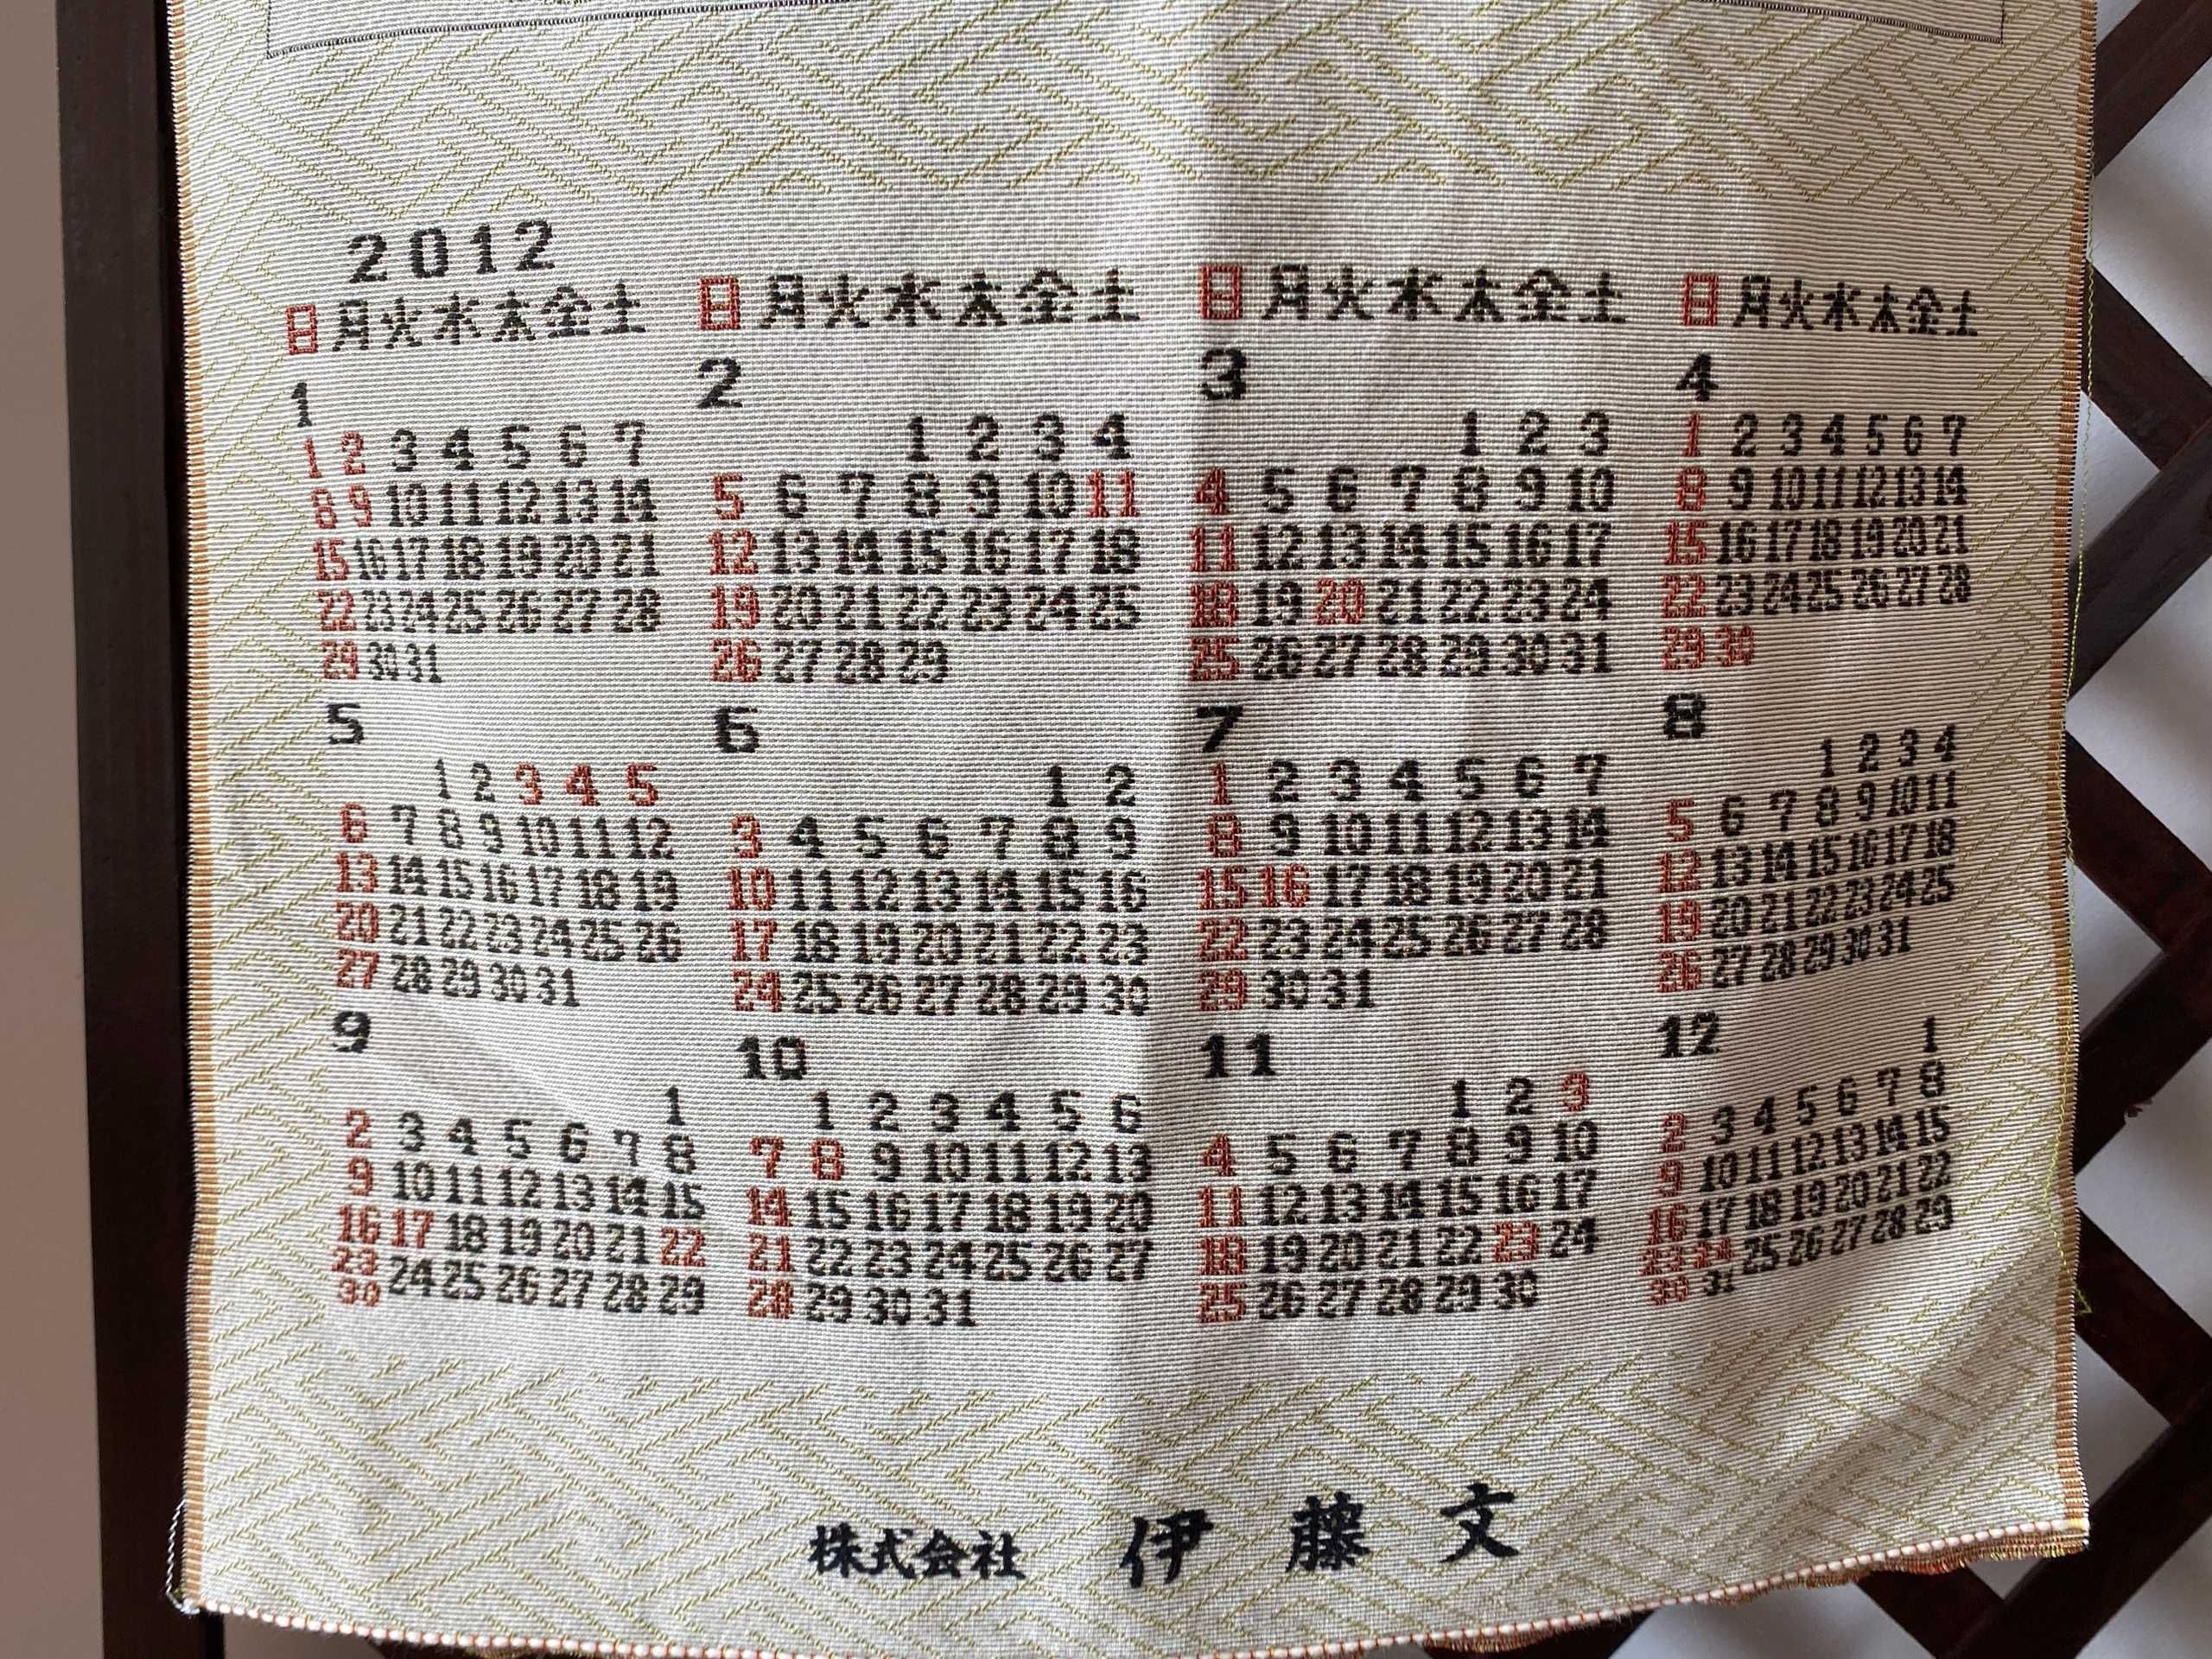 2012
日月火水木金土 日月火水木金土 日月火水木金土 日月火水木金土
1
1 2 3 4 5 6 7
8 9 10 11 12 13 14
15 16 17 18 19 20 21
22 23 24 25 26 27 28
29 30 31
2
1 2 3 4
5 6 7 8 9 10 11
12 13 14 15 16 17 18
19 20 21 22 23 24 25
26 27 28 29
3
1 2 3
4 5 6 7 8 9 10
11 12 13 14 15 16 17
18 19 20 21 22 23 24
25 26 27 28 29 30 31
4
1 2 3 4 5 6 7
8 9 10 11 12 13 14
15 16 17 18 19 20 21
22 23 24 25 26 27 28
29 30
5
1 2 3 4 5
6 7 8 9 10 11 12
13 14 15 16 17 18 19
20 21 22 23 24 25 26
27 28 29 30 31
6
1 2
3 4 5 6 7 8 9
10 11 12 13 14 15 16
17 18 19 20 21 22 23
24 25 26 27 28 29 30
7
1 2 3 4 5 6 7
8 9 10 11 12 13 14
15 16 17 18 19 20 21
22 23 24 25 26 27 28
29 30 31
8
1 2 3 4
5 6 7 8 9 10 11
12 13 14 15 16 17 18
19 20 21 22 23 24 25
26 27 28 29 30 31
9
1
2 3 4 5 6 7 8
9 10 11 12 13 14 15
16 17 18 19 20 21 22
23 24 25 26 27 28 29
30
10
1 2 3 4 5 6
7 8 9 10 11 12 13
14 15 16 17 18 19 20
21 22 23 24 25 26 27
28 29 30 31
11
1 2 3
4 5 6 7 8 9 10
11 12 13 14 15 16 17
18 19 20 21 22 23 24
25 26 27 28 29 30
12
1
2 3 4 5 6 7 8
9 10 11 12 13 14 15
16 17 18 19 20 21 22
23 24 25 26 27 28 29
30 31
株式会社 伊藤文